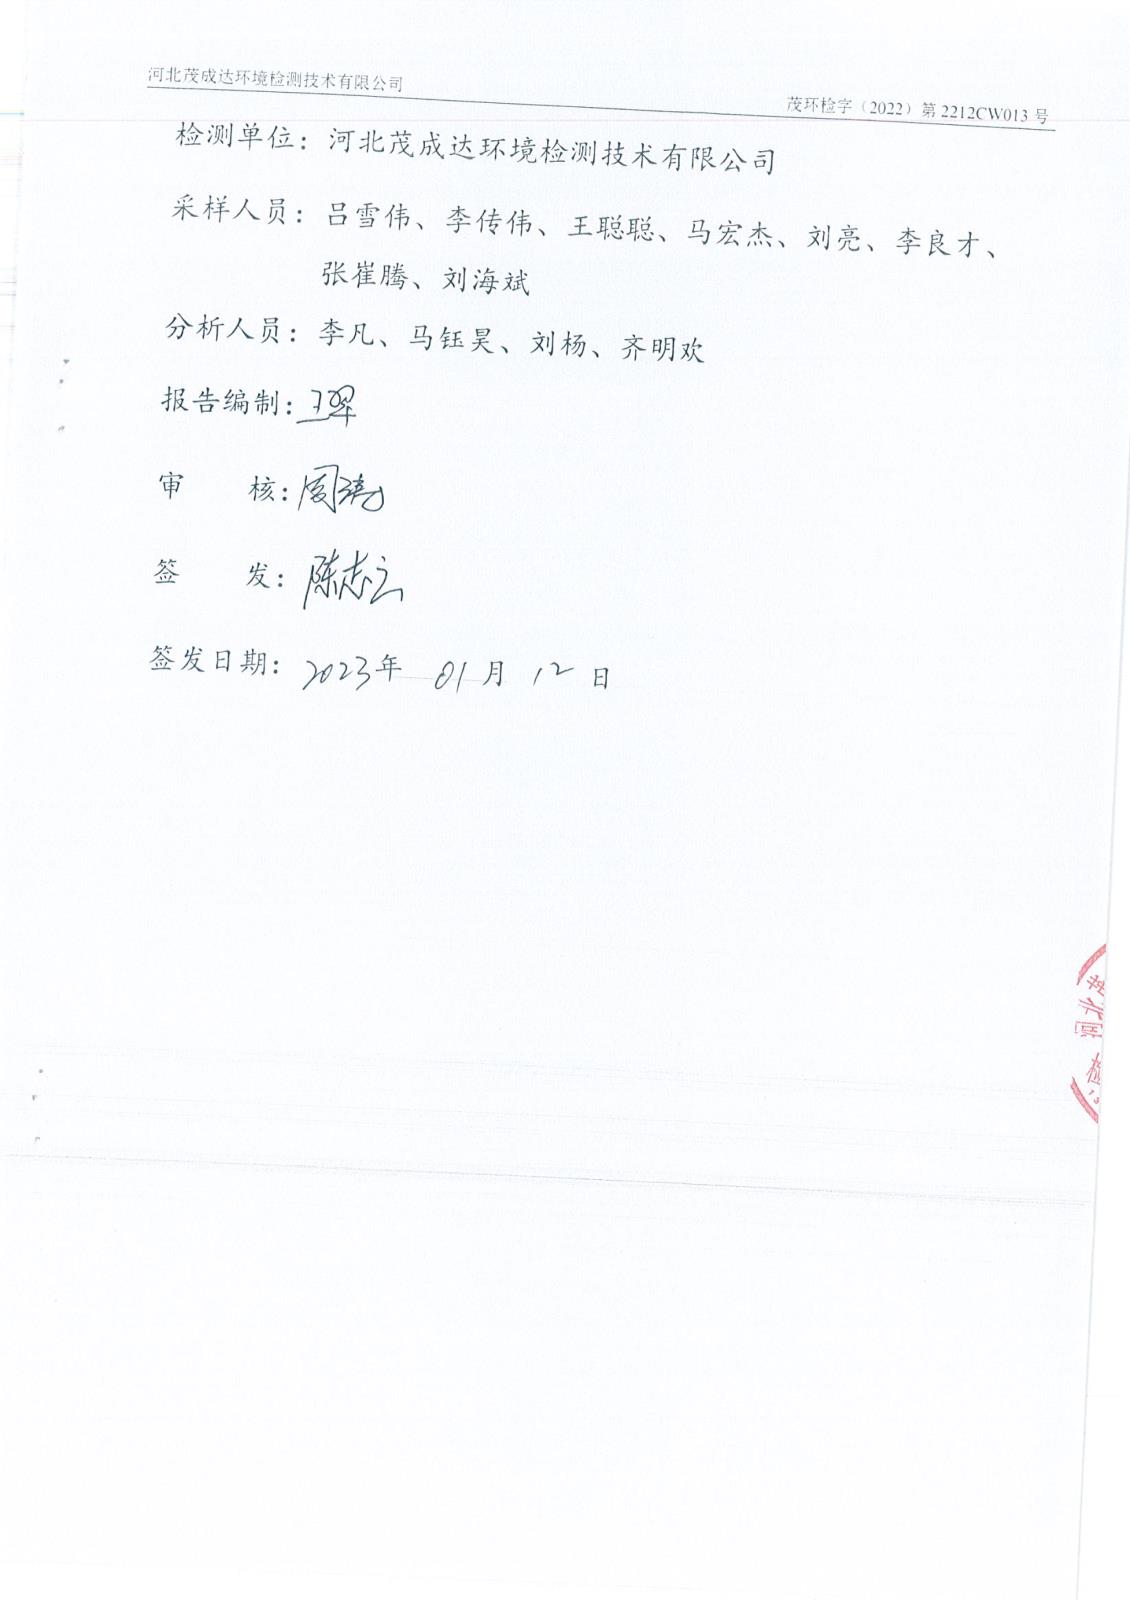 河北茂成达环境检测技术有限公司
茂环检字（2022）第 2212CW013 号
检测单位：河北茂成达环境检测技术有限公司
采样人员：吕雪伟、李传伟、王聪聪、马宏杰、刘亮、李良才、
张崔腾、刘海斌
分析人员：李凡、马钰昊、刘杨、齐明欢
报告编制：王翠
审 核：周涛
签 发：陈志立
签发日期：2023年 01月 12日
检